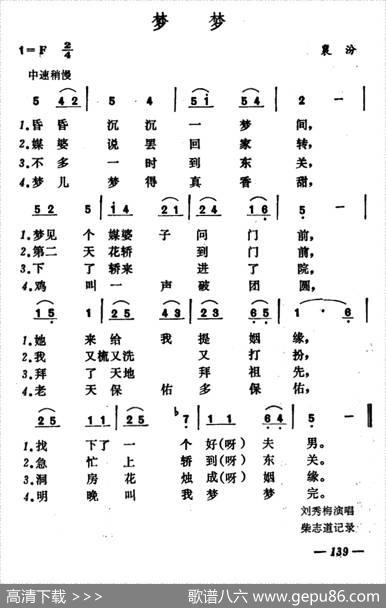 梦 梦
1=F 2/4 襄 汾
中速稍慢
5 42 5 4 51 54 2 —
1.昏 昏 沉 沉 一 梦 间，
2.媒 婆 说 罢 回 家 转，
3.不 多 一 时 到 东 关，
4.梦 儿 梦 得 真 香 甜，
52 5 14 21 24 16 5 —
1.梦见 个 媒婆 子 问 门 前，
2.第二 天 花轿 到 门 前，
3.下 了 轿来 进 了 院，
4.鸡 叫 一 声 破 团 圆，
15 25 24 43 23 65 1 · 3
1.她 来 给 我 提 姻 缘，
2.我 又梳又洗 又 打 扮，
3.拜 了 天地 拜 祖 先，
4.老 天 保 佑 多 保 佑，
25 11 25 ♭7 11 64 5 —
1.找 下了 一 个 好(呀) 夫 男。
2.急 忙 上 轿 到(呀) 东 关。
3.洞 房 花 烛 成(呀) 姻 缘。
4.明 晚 叫 我 梦 梦 完。
刘秀梅演唱
柴志道记录
— 139 —
高清下载 >>> 歌谱八六 www.gepu86.com